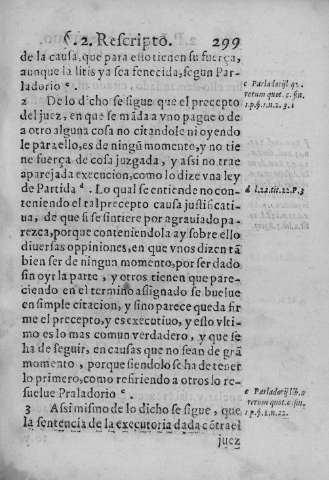 §. 2. Rescripto. 299
de la causa, que para ello tienen su fuerça,
aunque la litis ya sea fenecida, segun Par-
ladorio c.
2 De lo dicho se sigue que el precepto
del juez, en que se mãda a vno pague o de
a otro alguna cosa no citandole ni oyendo
le para ello, es de ningũ momento, y no tie
ne fuerça de cosa juzgada, y assi no trae
aparejada execucion, como lo dize vna ley
de Partida d. Lo qual se entiende no con-
teniendo el tal precepto causa justificati-
ua, de que si se sintiere por agrauiado pa-
rezca, porque conteniendola ay sobre ello
diuersas oppiniones, en que vnos dizen tã
bien ser de ningun momento, por ser dado
sin oyr la parte, y otros tienen que pare-
ciendo en el termino assignado se buelue
en simple citacion, y sino parece queda fir
me el precepto, y es executiuo, y esto vlti
mo es lo mas comun verdadero, y que se
ha de seguir, en causas que no sean de grã
momento, porque siendolo se ha de tener
lo primero, como refiriendo a otros lo re-
suelue Praladorio e.
3 Assi mismo de lo dicho se sigue, que
la sentencia de la executoria dada cõtra el
juez
c Parladorij
rerum quot. c. fin.
1. p. §. 1. n. 2. 3.
d l. 22. tit. 22. P. 3
e Parladorij lib.
rerum quot. c. fin.
1. p. §. 1. n. 22.